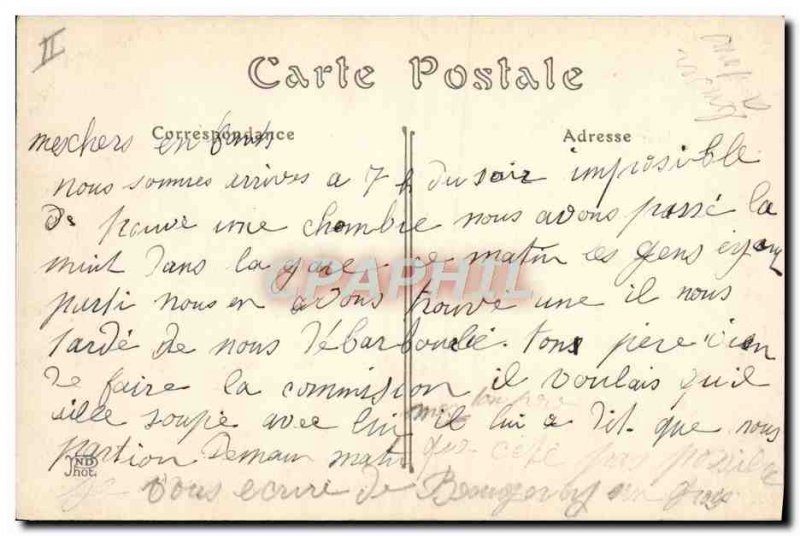 II
Carte Postale
Correspondance
Adresse
mes chers enfants
nous sommes arrives a 7 h du soir impossible
de trouve une chambre nous avons passé la
nuit dans la gare ce matin les gens
parti nous en avons trouvé une il nous
tardé de nous débarboullé. tons père vien
de faire la commission il voulais qu'il
aille soupé avec lui mais ton père
il lui a dit que nous
partion demain matin que cété pas posible
Vous ecrire de
ND
Phot.
CPAPHIL